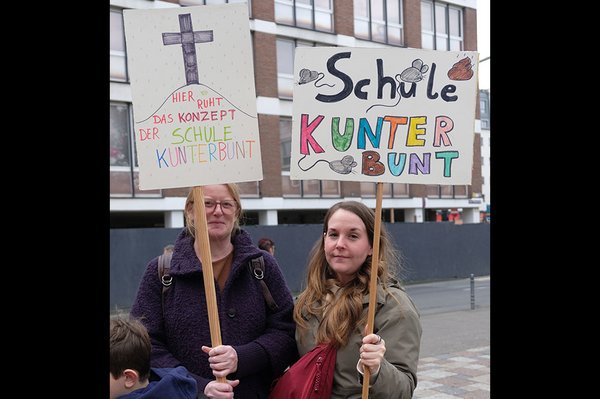 HIER RUHT
DAS KONZEPT
DER SCHULE
KUNTERBUNT
Schule
KUNTER
BUNT